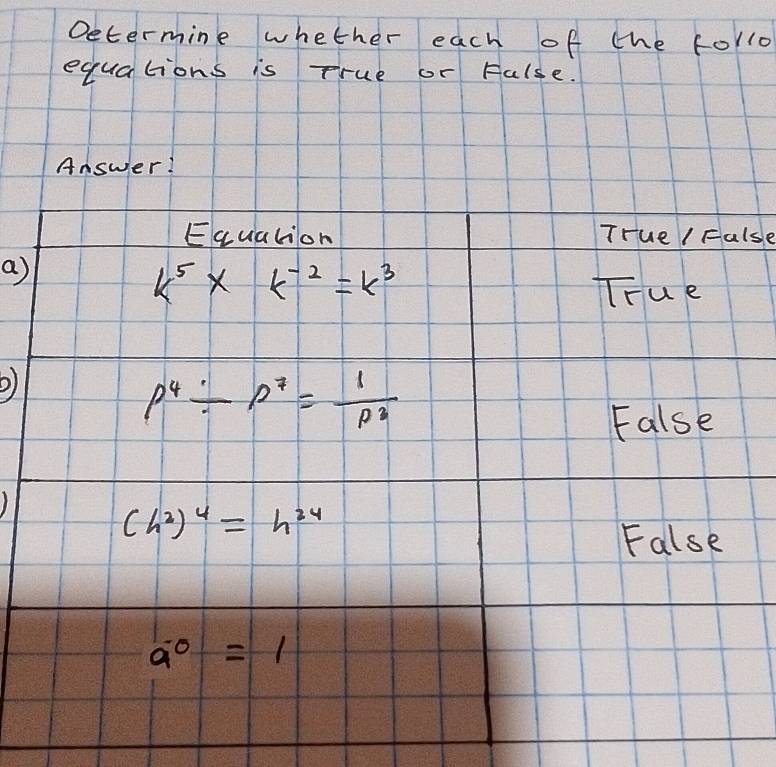 Determine whether each of the follo
equations is True or False.
Answer:
Equation True / False
a) k⁵ × k⁻² = k³ True
b) p⁴ ÷ p⁷ = 1/p³ False
) (h²)⁴ = h²⁴ False
a⁰ = 1